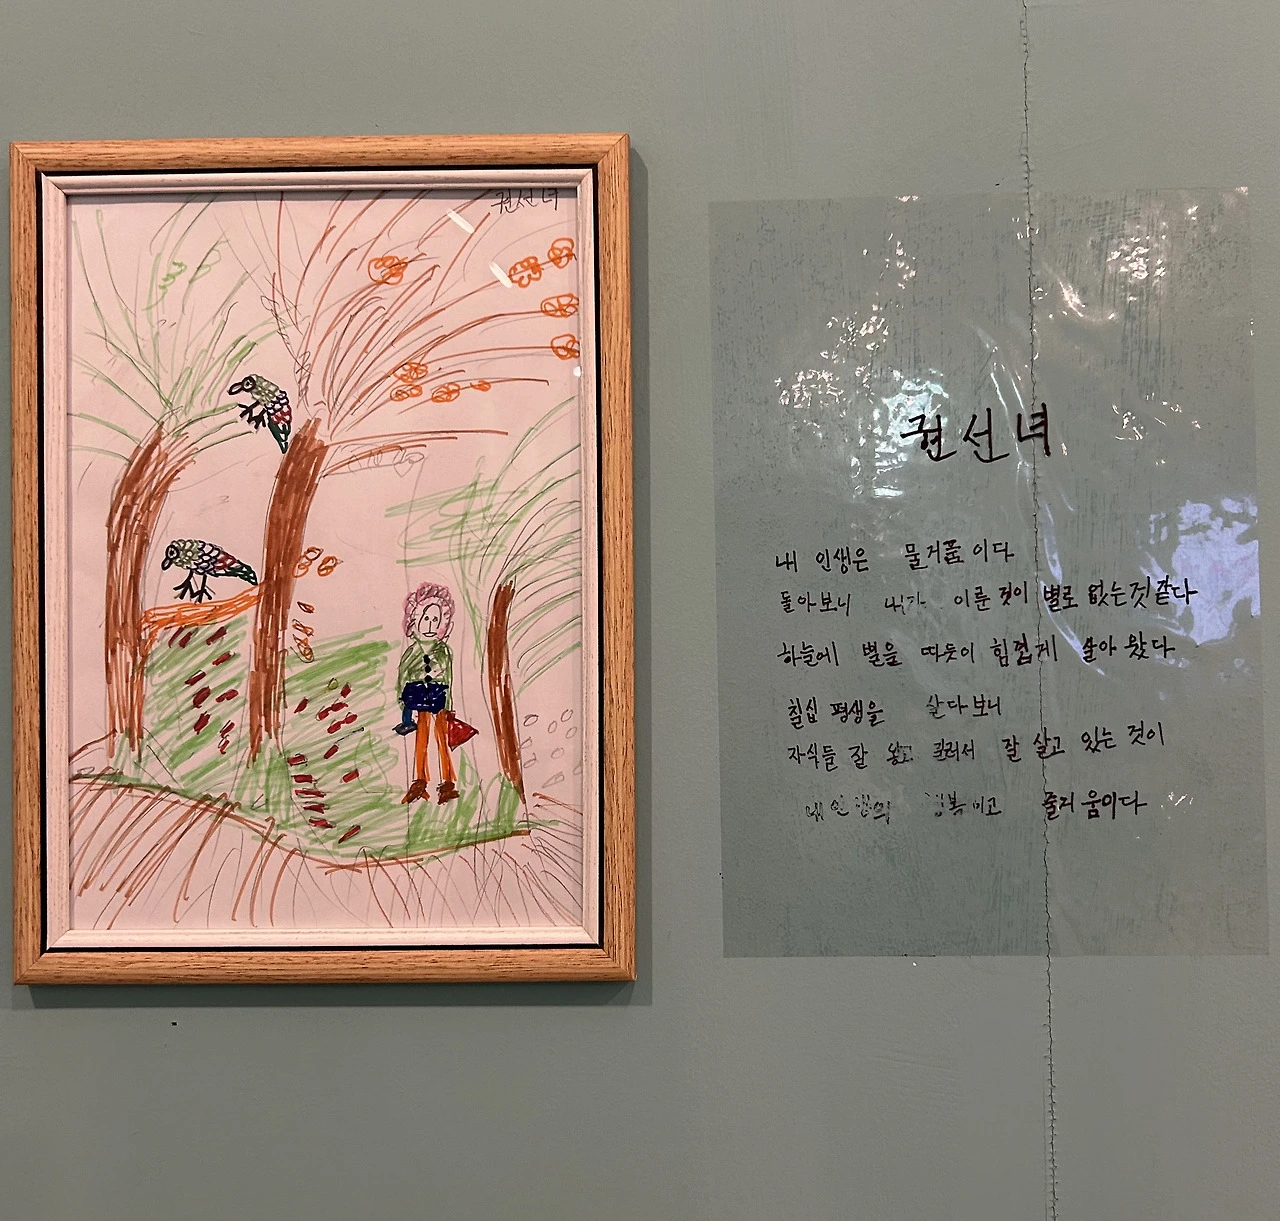 권선녀
권선녀
내 인생은 물거품이다
돌아보니 내가 이룬 것이 별로 없는것 같다
하늘에 별을 따듯이 힘겹게 살아 왔다
칠십 평생을 살다보니
자식들 잘 커서 잘 살고 있는 것이
내 인생의 행복이고 줄거움이다